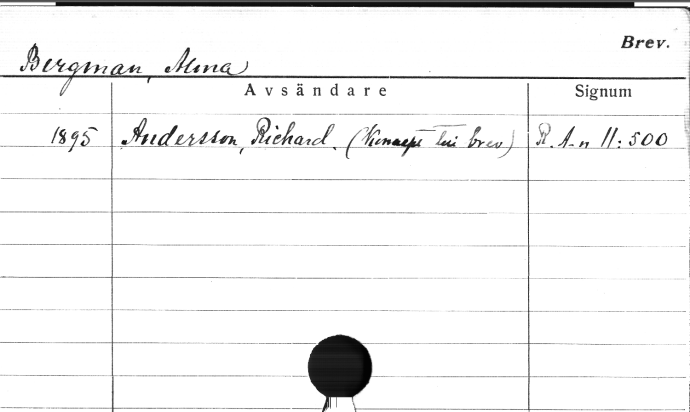 Brev.
Bergman, Alma
Avsändare Signum
1895 Andersson, Richard. (Koncept till brev) R. A-n II: 500